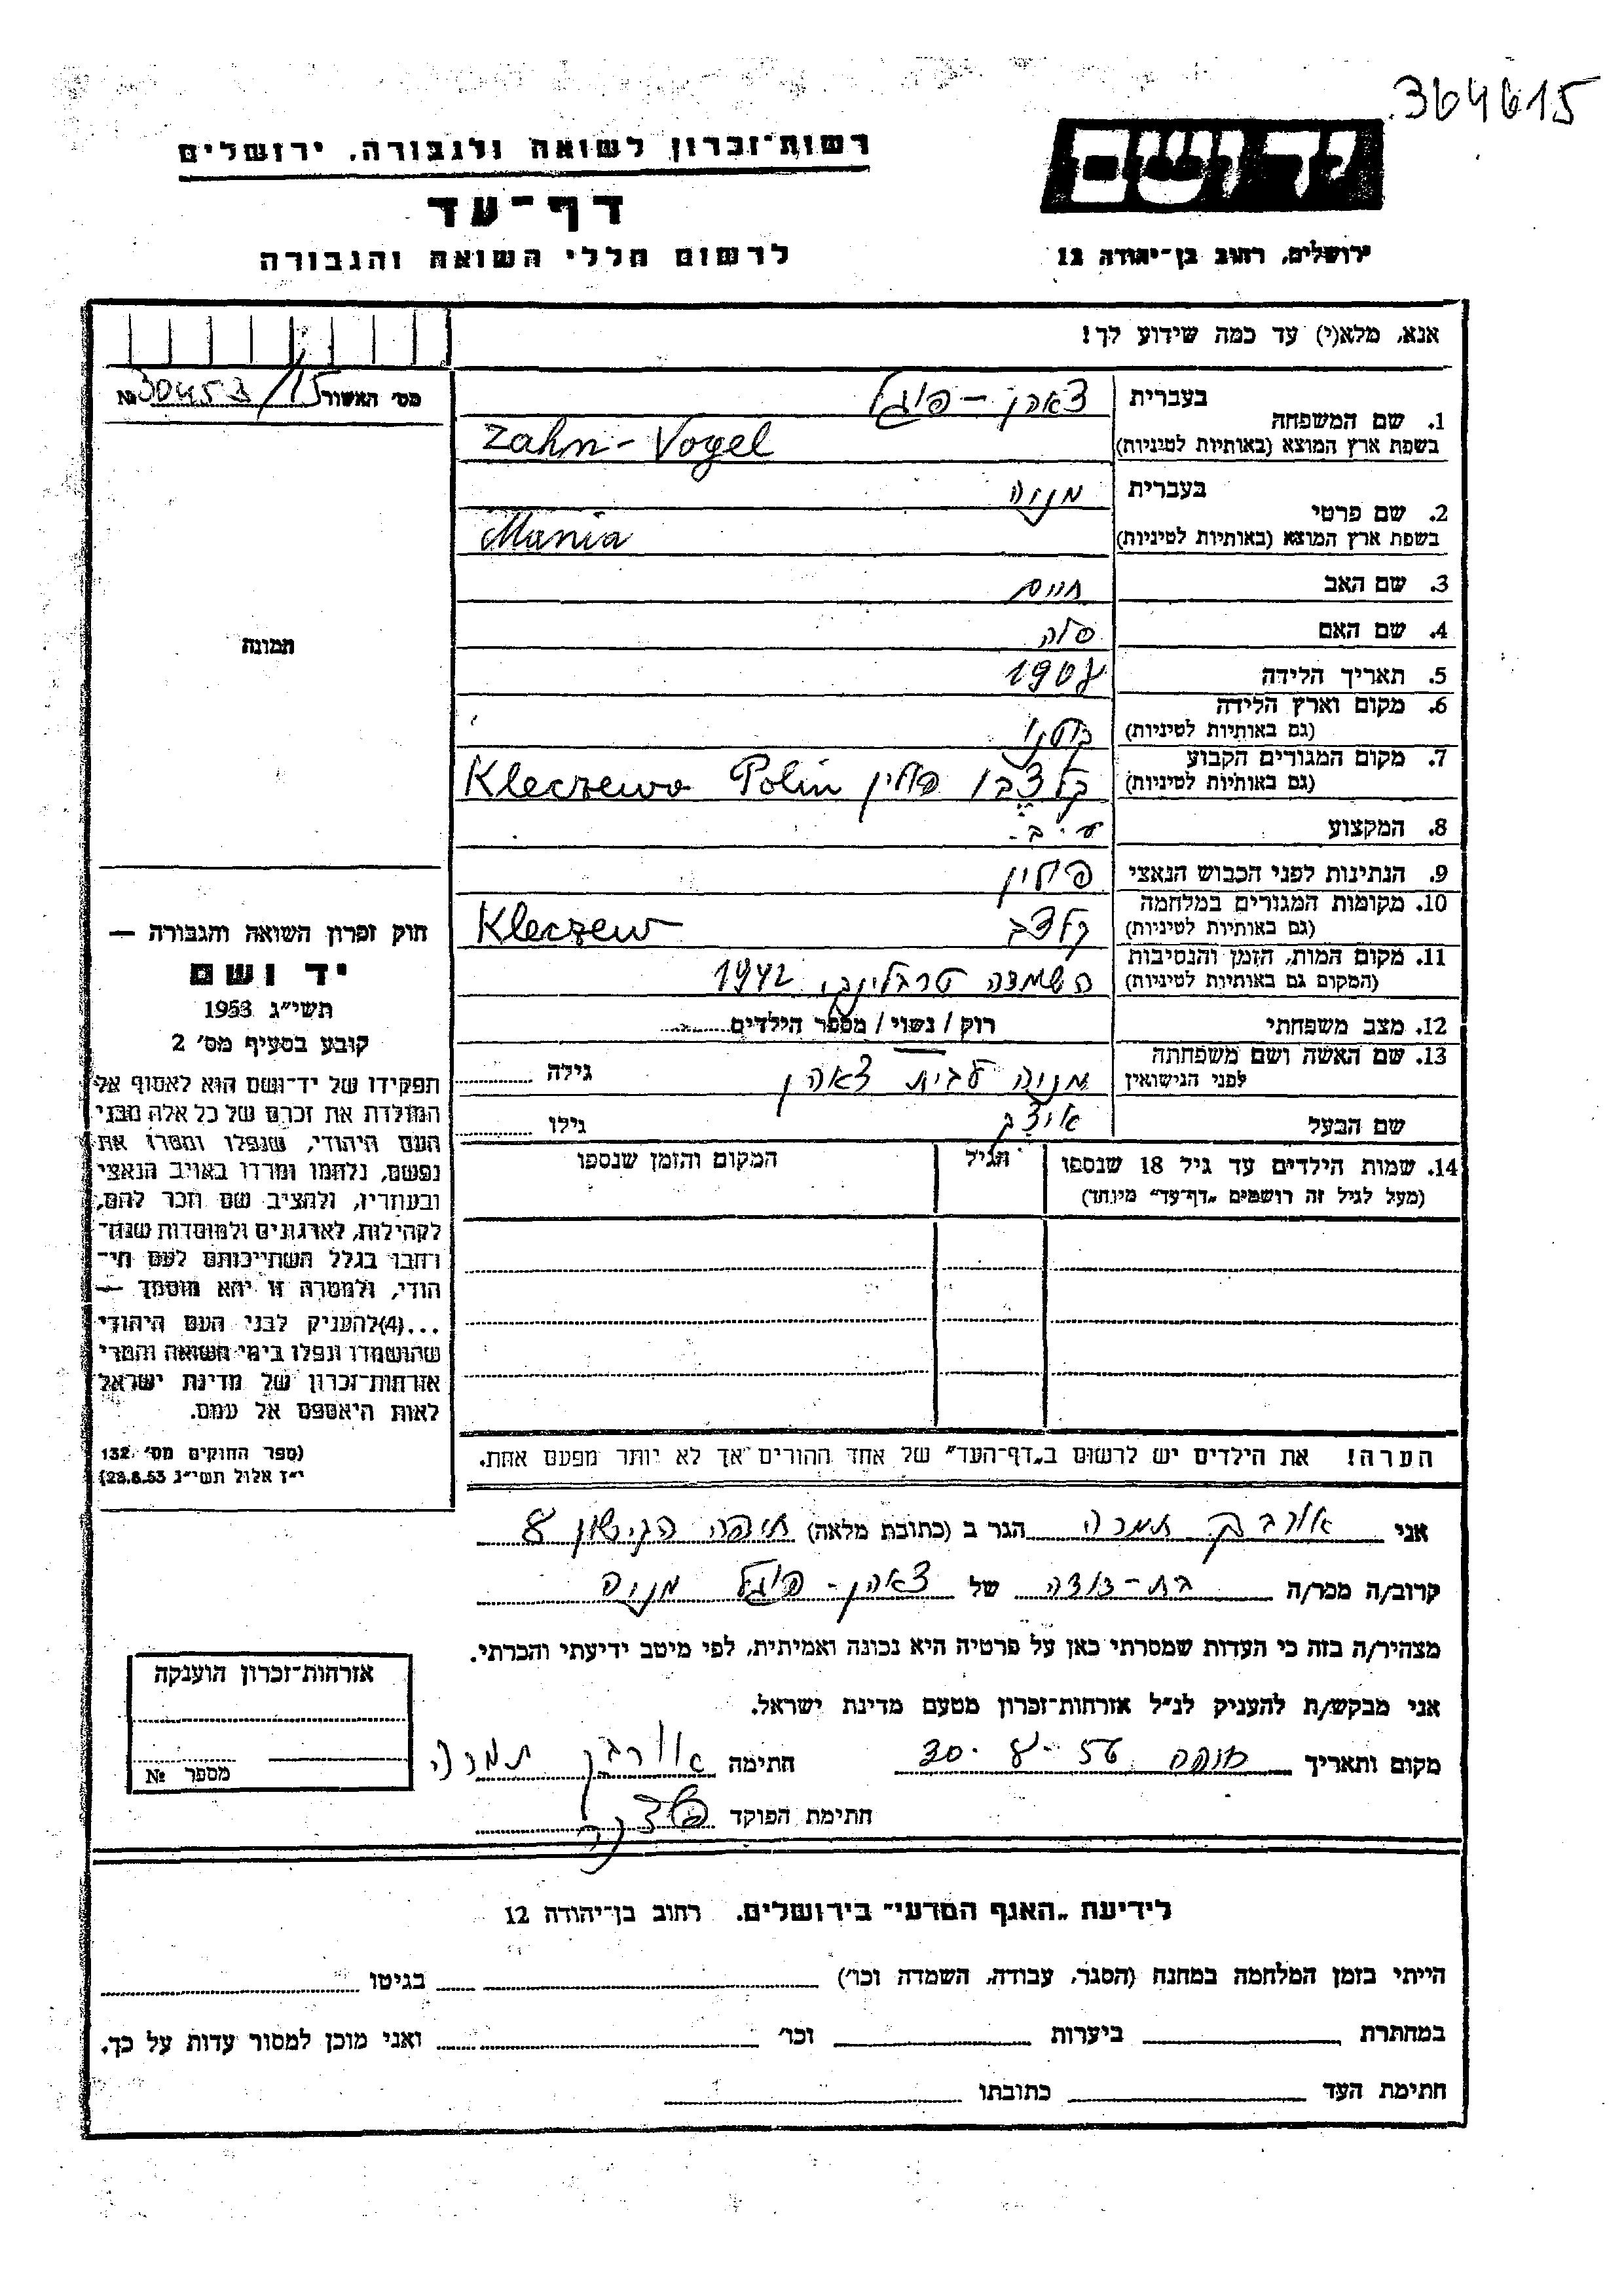 364615
יד ושם
רשות־זכרון לשואה ולגבורה, ירושלים
דף־עד
ירושלים, רחוב בן־יהודה 12
לרשום חללי השואה והגבורה
אנא, מלא(י) עד כמה שידוע לך!
מס׳ האשור 30453/15 №
תמונה
חוק זכרון השואה והגבורה —
יד ושם
תשי״ג 1953
קובע בסעיף מס׳ 2
תפקידו של יד־ושם הוא לאסוף אל
המולדת את זכרם של כל אלה מבני
העם היהודי, שנפלו ומסרו את
נפשם, נלחמו ומרדו באויב הנאצי
ובעוזריו, ולהציב שם וזכר להם,
לקהילות, לארגונים ולמוסדות שנח־
רבו בגלל השתייכותם לעם הי־
הודי, ולמטרה זו יהא מוסמך —
...(4)להעניק לבני העם היהודי
שהושמדו ונפלו בימי השואה והמרי
אזרחות־זכרון של מדינת ישראל
לאות היאספם אל עמם.
(ספר החוקים מס׳ 132
י״ז אלול תשי״ג 28.8.53)
1. שם המשפחה בעברית צאהן - פוגל
בשפת ארץ המוצא (באותיות לטיניות) Zahn - Vogel
2. שם פרטי בעברית מניה
בשפת ארץ המוצא (באותיות לטיניות) Mania
3. שם האב חיים
4. שם האם
5. תאריך הלידה 1908
6. מקום וארץ הלידה
(גם באותיות לטיניות)
7. מקום המגורים הקבוע
(גם באותיות לטיניות) קלצבו פולין Kleczewo Polin
8. המקצוע ע.ב.
9. הנתינות לפני הכבוש הנאצי פולין
10. מקומות המגורים במלחמה
(גם באותיות לטיניות) קלצב Kleczew
11. מקום המות, הזמן והנסיבות
(המקום גם באותיות לטיניות) השמדה טרבלינקי 1942
12. מצב משפחתי רוק / נשוי / מספר הילדים
13. שם האשה ושם משפחתה
לפני הנישואין מניה לבית צאהן גילה
שם הבעל גילו
14. שמות הילדים עד גיל 18 שנספו הגיל המקום והזמן שנספו
(מעל לגיל זה רושמים „דף־עד״ מיוחד)
הערה! את הילדים יש לרשום ב„דף־העד״ של אחד ההורים אך לא יותר מפעם אחת.
אני אורבך תמרה הגר ב (כתובת מלאה) חיפה הגישון 8
קרוב/ה מכר/ה בת-דודה של צאהן - פוגל מניה
מצהיר/ה בזה כי העדות שמסרתי כאן על פרטיה היא נכונה ואמיתית, לפי מיטב ידיעתי והכרתי.
אני מבקש/ת להעניק לנ״ל אזרחות־זכרון מטעם מדינת ישראל.
מקום ותאריך חיפה 30.8.56 חתימה אורבך תמרה
חתימת הפוקד
אזרחות־זכרון הוענקה
מספר №
לידיעת „האגף המדעי״ בירושלים. רחוב בן־יהודה 12
הייתי בזמן המלחמה במחנה (הסגר, עבודה, השמדה וכו׳) בגיטו
במחתרת ביערות וכו׳ ואני מוכן למסור עדות על כך.
חתימת העד כתובתו